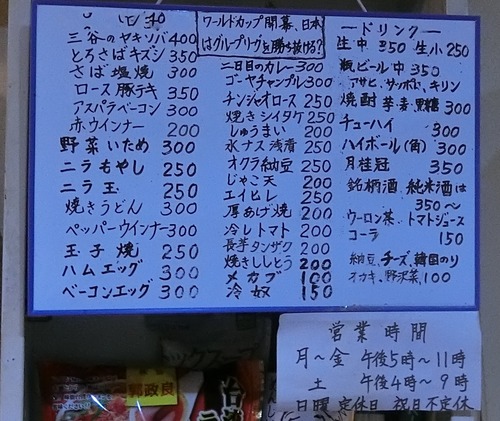 三谷のヤキソバ 400
とろさばキズシ 350
さば塩焼 300
ロース豚テキ 350
アスパラベーコン 300
赤ウインナー 200
野菜いため 300
ニラもやし 250
ニラ玉 250
焼きうどん 300
ペッパーウインナー 300
玉子焼 250
ハムエッグ 300
ベーコンエッグ 300
ワールドカップ開幕、日本
はグループリーグを勝ち抜ける?
二日目のカレー 300
ゴーヤチャンプル 300
チンジャオロース 250
焼きシイタケ 250
しゅうまい 200
水ナス浅漬 250
オクラ納豆 250
じゃこ天 200
エイヒレ 250
厚あげ焼 200
冷しトマト 200
長芋タンザク 200
焼きししとう 200
メカブ 100
冷奴 150
ードリンクー
生中 350 生小 250
瓶ビール中 350
アサヒ、サッポロ、キリン
焼酎 芋、麦、黒糖 300
チューハイ 300
ハイボール(角) 300
月桂冠 350
銘柄酒、純米酒は
350〜
ウーロン茶、トマトジュース
コーラ 150
納豆、チーズ、韓国のり
オカキ、野沢菜、100
営業時間
月〜金 午後5時〜11時
土 午後4時〜9時
日曜 定休日 祝日不定休
郭政良